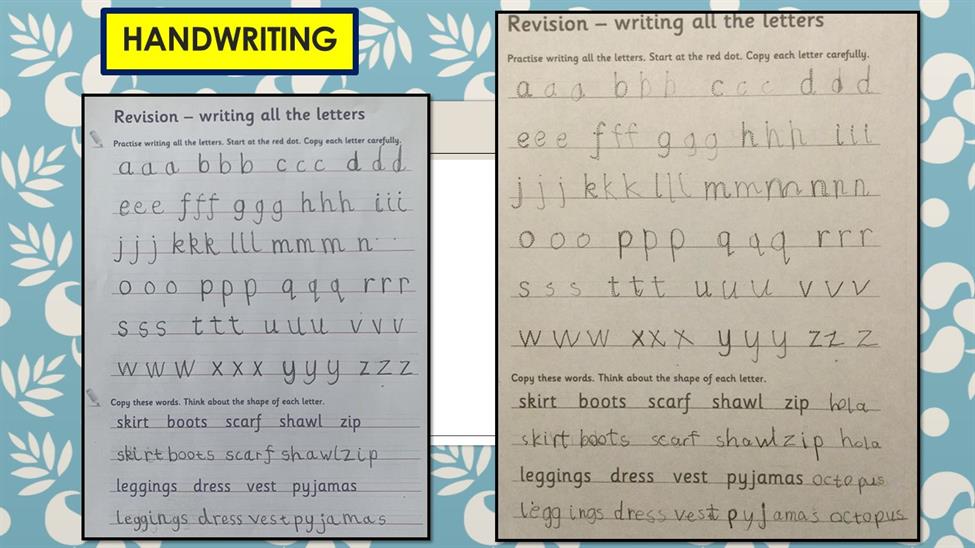 HANDWRITING
Revision – writing all the letters
Practise writing all the letters. Start at the red dot. Copy each letter carefully.
a a a b b b c c c d d d
e e e f f f g g g h h h i i i
j j j k k k l l l m m m n
o o o p p p q q q r r r
s s s t t t u u u v v v
w w w x x x y y y z z z
Copy these words. Think about the shape of each letter.
skirt boots scarf shawl zip
skirt boots scarf shawl zip
leggings dress vest pyjamas
leggings dress vest pyjamas
Revision – writing all the letters
Practise writing all the letters. Start at the red dot. Copy each letter carefully.
a a a b b b c c c d d d
e e e f f f g g g h h h i i i
j j j k k k l l l m m m n n n
o o o p p p q q q r r r
s s s t t t u u u v v v
w w w x x x y y y z z z
Copy these words. Think about the shape of each letter.
skirt boots scarf shawl zip hola
skirt boots scarf shawl zip hola
leggings dress vest pyjamas octopus
leggings dress vest pyjamas octopus